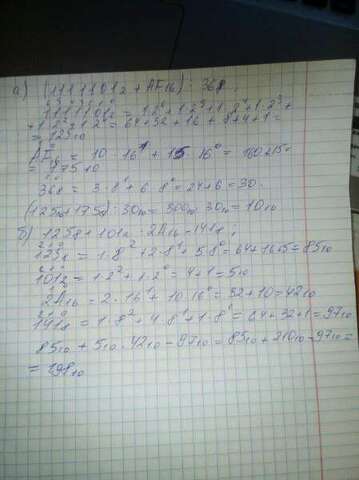 а) (1111101₂ + AF₁₆) : 36₈
1111101₂ = 1·2⁶ + 1·2⁵ + 1·2⁴ + 1·2³ +
+ 1·2² + 1·2⁰ = 64 + 32 + 16 + 8 + 4 + 1 =
= 125₁₀
AF₁₆ = 10·16¹ + 15·16⁰ = 160 + 15 =
= 175₁₀
36₈ = 3·8¹ + 6·8⁰ = 24 + 6 = 30
(125₁₀ + 175₁₀) : 30₁₀ = 300₁₀ : 30₁₀ = 10₁₀
б) 125₈ + 101₂ · 2A₁₆ - 141₈
125₈ = 1·8² + 2·8¹ + 5·8⁰ = 64 + 16 + 5 = 85₁₀
101₂ = 1·2² + 1·2⁰ = 4 + 1 = 5₁₀
2A₁₆ = 2·16¹ + 10·16⁰ = 32 + 10 = 42₁₀
141₈ = 1·8² + 4·8¹ + 1·8⁰ = 64 + 32 + 1 = 97₁₀
85₁₀ + 5₁₀ · 42₁₀ - 97₁₀ = 85₁₀ + 210₁₀ - 97₁₀ =
= 198₁₀